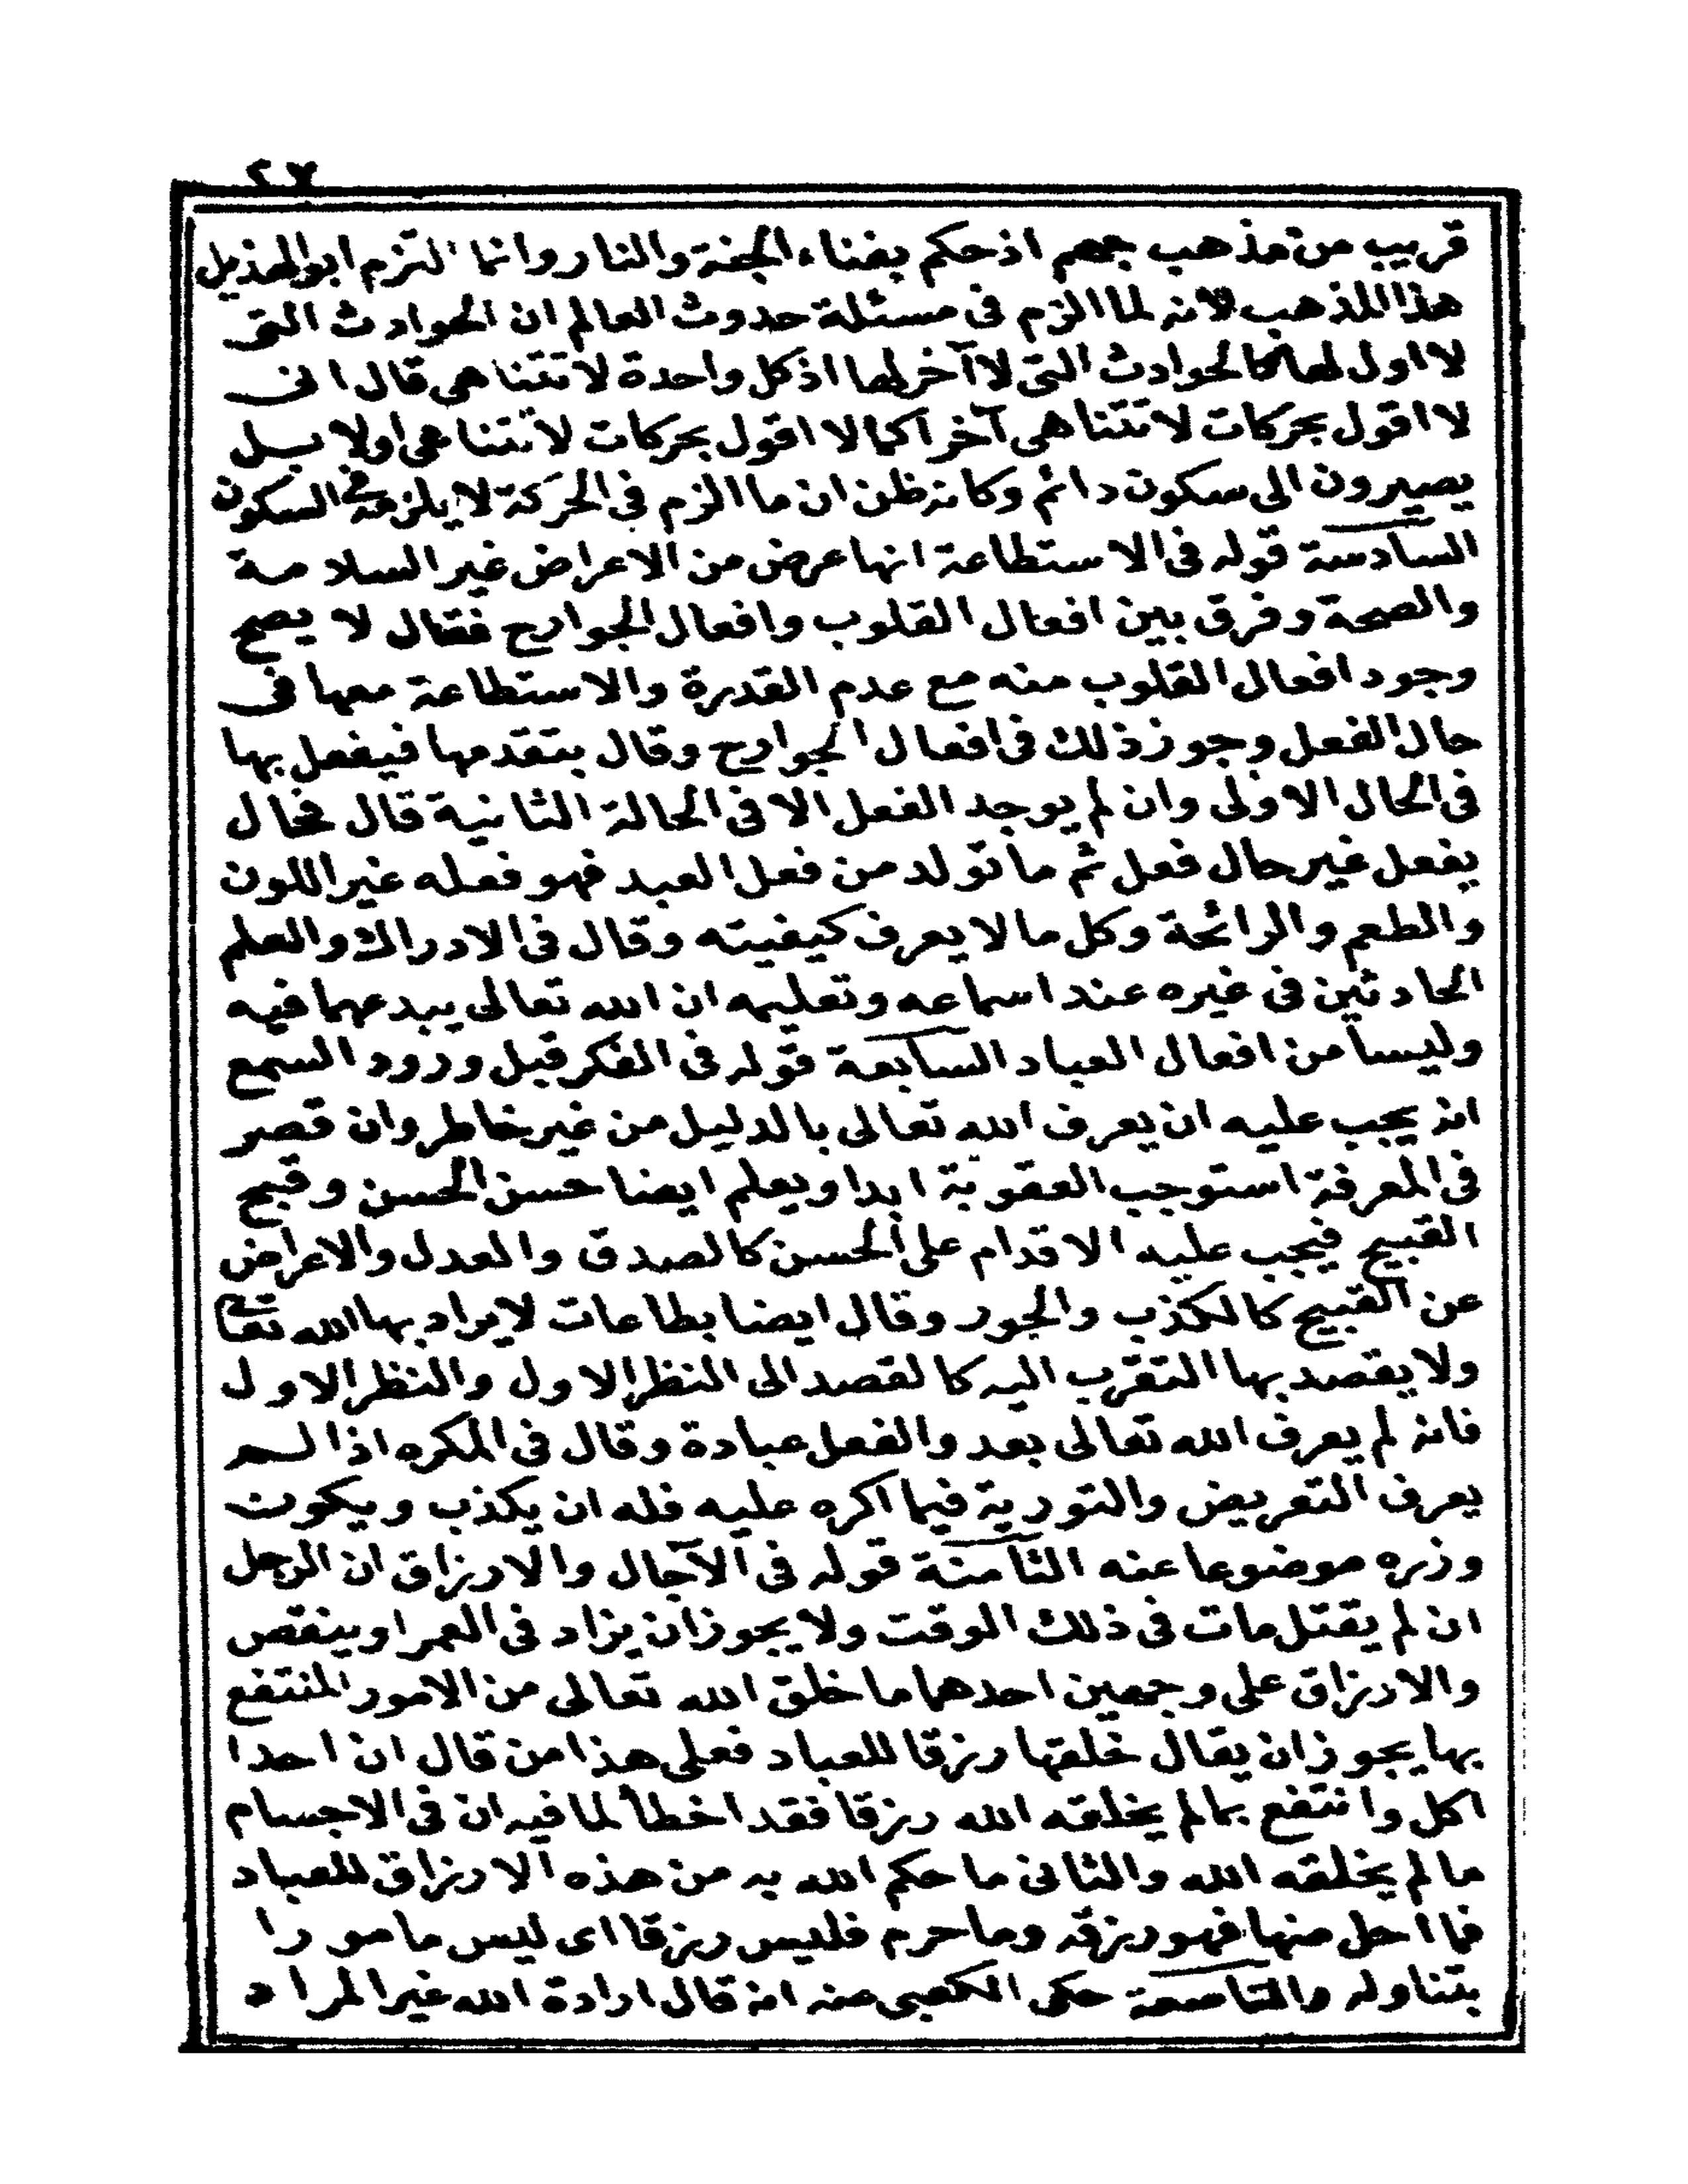 ٢٧
قريب من مذهب جهم اذ حكم بفناء الجنة والنار وانما التزم ابو الهذيل
هذا المذهب لانه لما الزم فى مسئلة حدوث العالم ان الحوادث التى
لا اول لها كالحوادث التى لا آخر لها اذ كل واحدة لا تتناهى قال انى
لا اقول بحركات لا تتناهى آخرا كما لا اقول بحركات لا تتناهى اولا بل
يصيرون الى سكون دائم وكانه ظن ان ما الزم فى الحركة لا يلزمه فى السكون
السادسة قوله فى الاستطاعة انها عرض من الاعراض غير السلامة
والصحة وفرق بين افعال القلوب وافعال الجوارح فقال لا يصح
وجود افعال القلوب منه مع عدم القدرة والاستطاعة معها فى
حال الفعل وجوز ذلك فى افعال الجوارح وقال بتقدمها فيفعل بها
فى الحال الاولى وان لم يوجد الفعل الا فى الحالة الثانية قال فحال
يفعل غير حال فعل ثم ما تولد من فعل العبد فهو فعله غير اللون
والطعم والرائحة وكل ما لا يعرف كيفيته وقال فى الادراك والعلم
الحادثين فى غيره عند اسماعه وتعليمه ان الله تعالى يبدعهما فيه
وليسا من افعال العباد السابعة قوله فى الفكر قبل ورود السمع
انه يجب عليه ان يعرف الله تعالى بالدليل من غير خاطر وان قصر
فى المعرفة استوجب العقوبة ابدا ويعلم ايضا حسن الحسن وقبح
القبيح فيجب عليه الاقدام على الحسن كالصدق والعدل والاعراض
عن القبيح كالكذب والجور وقال ايضا بطاعات لا يراد بها الله تعالى
ولا يقصد بها التقرب اليه كالقصد الى النظر الاول والنظر الاول
فانه لم يعرف الله تعالى بعد والفعل عبادة وقال فى المكره اذا لم
يعرف التعريض والتورية فيما اكره عليه فله ان يكذب ويكون
وزره موضوعا عنه الثامنة قوله فى الآجال والارزاق ان الرجل
ان لم يقتل مات فى ذلك الوقت ولا يجوز ان يزاد فى العمر او ينقص
والارزاق على وجهين احدهما ما خلق الله تعالى من الامور المنتفع
بها يجوز ان يقال خلقها رزقا للعباد فعلى هذا من قال ان احدا
اكل وانتفع بما لم يخلقه الله رزقا فقد اخطأ لما فيه ان فى الاجسام
ما لم يخلقه الله والثانى ما حكم الله به من هذه الارزاق للعباد
فما احل منها فهو رزقه وما حرم فليس رزقا اى ليس مامورا
بتناوله والتاسعة حكى الكعبى عنه انه قال ارادة الله غير المراد